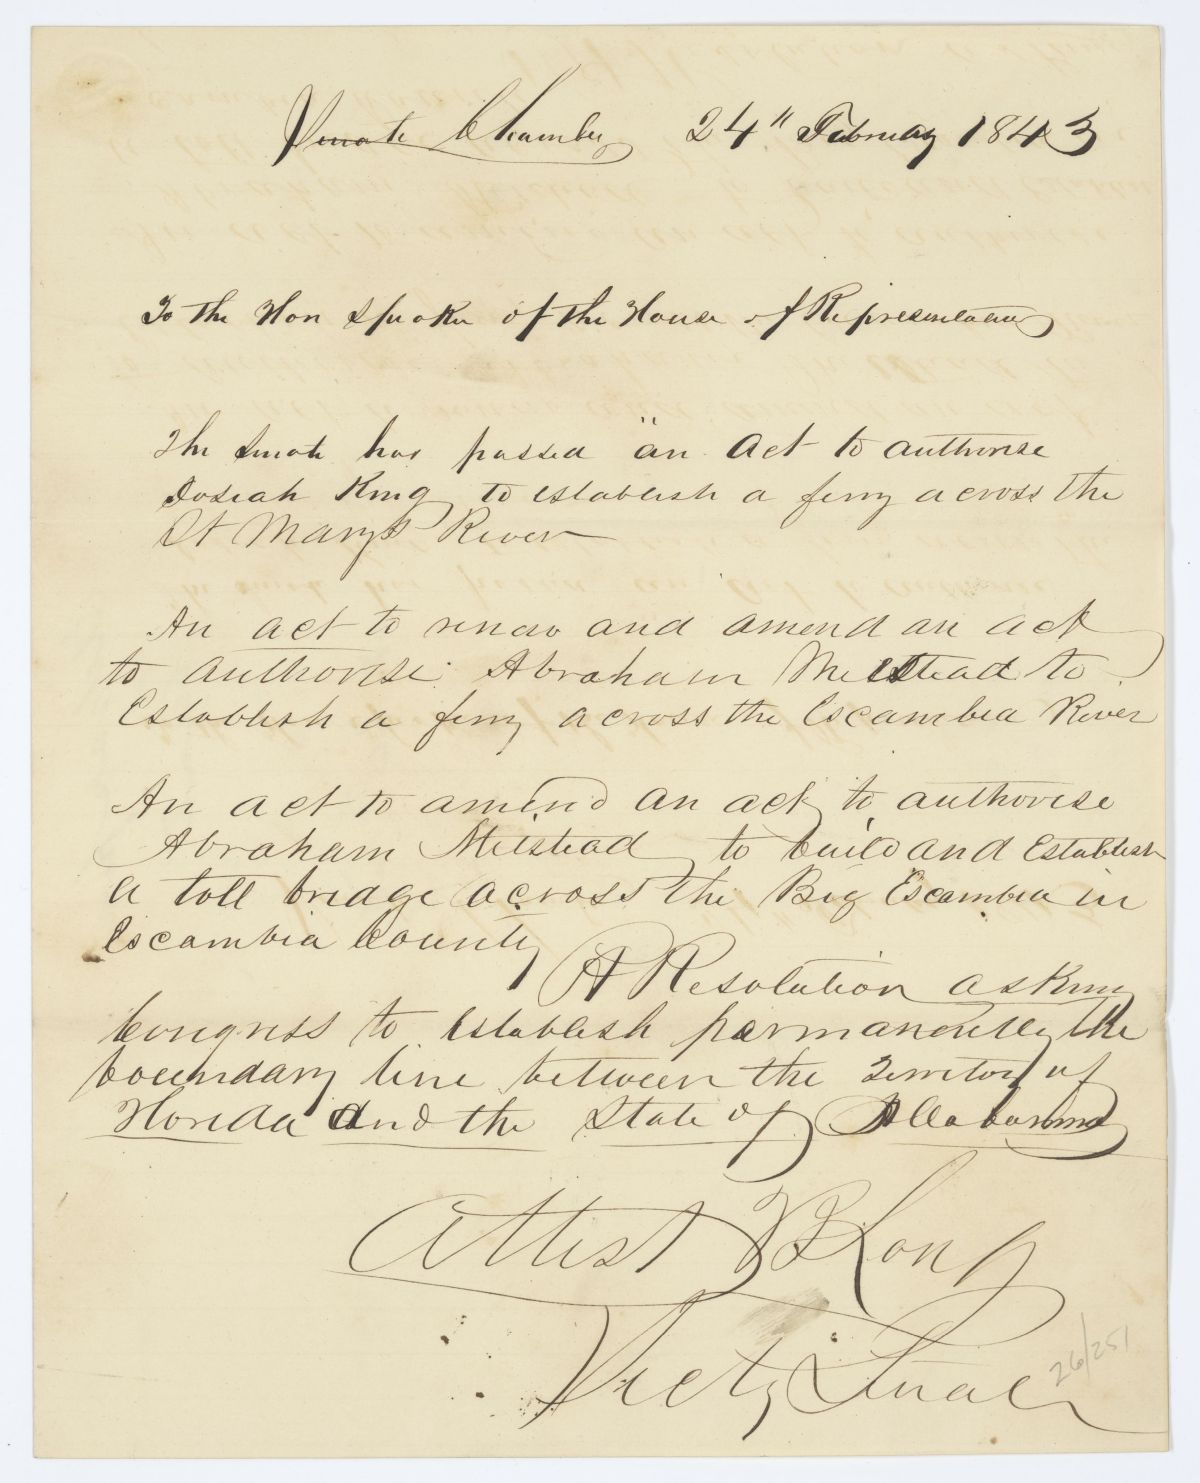 Senate Chamber 24" February 1843
To the Hon Speaker of the House of Representatives
The Senate has passed "an Act to authorise
Josiah King to establish a ferry across the
St Marys River
An act to renew and amend an act
to authorise Abraham Milstead to
Establish a ferry across the Escambia River
An act to amend an act to authorise
Abraham Milstead to build and Establish
a toll bridge across the Big Escambia in
Escambia County
A Resolution asking
Congress to establish permanently the
boundary line between the Territory of
Florida and the State of Allabama
Attest B Long
Secty Senate
26/251